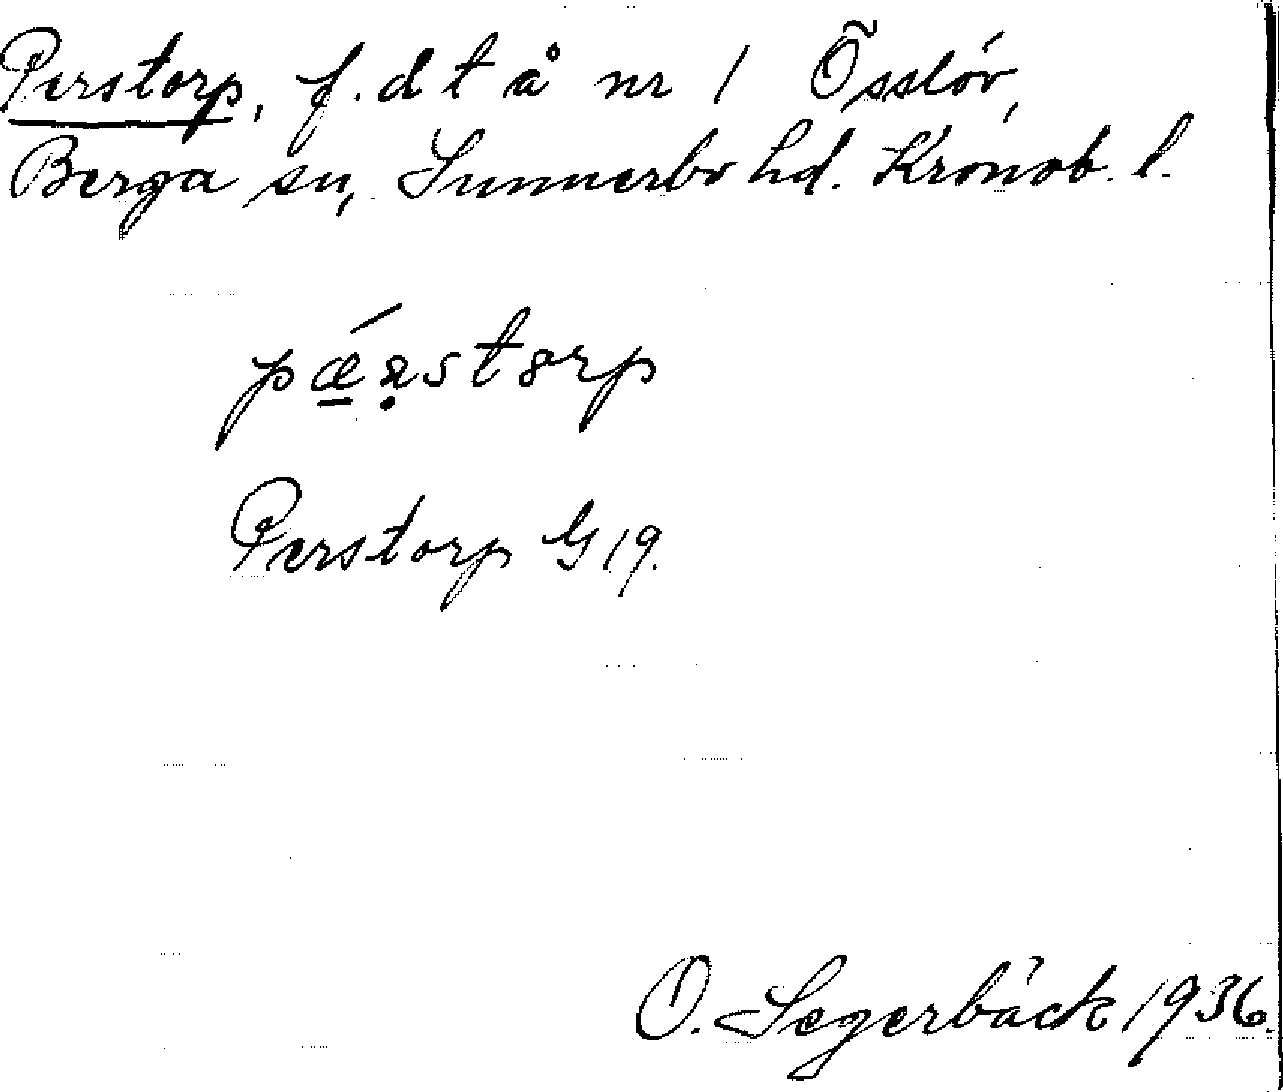 Perstorp, f. d t å nr 1 Össlöv,
Berga sn, Sunnerbo hd. Kronob. l.
pǽʀstorp
Perstorp G 19.
O. Segerbäck 1936.